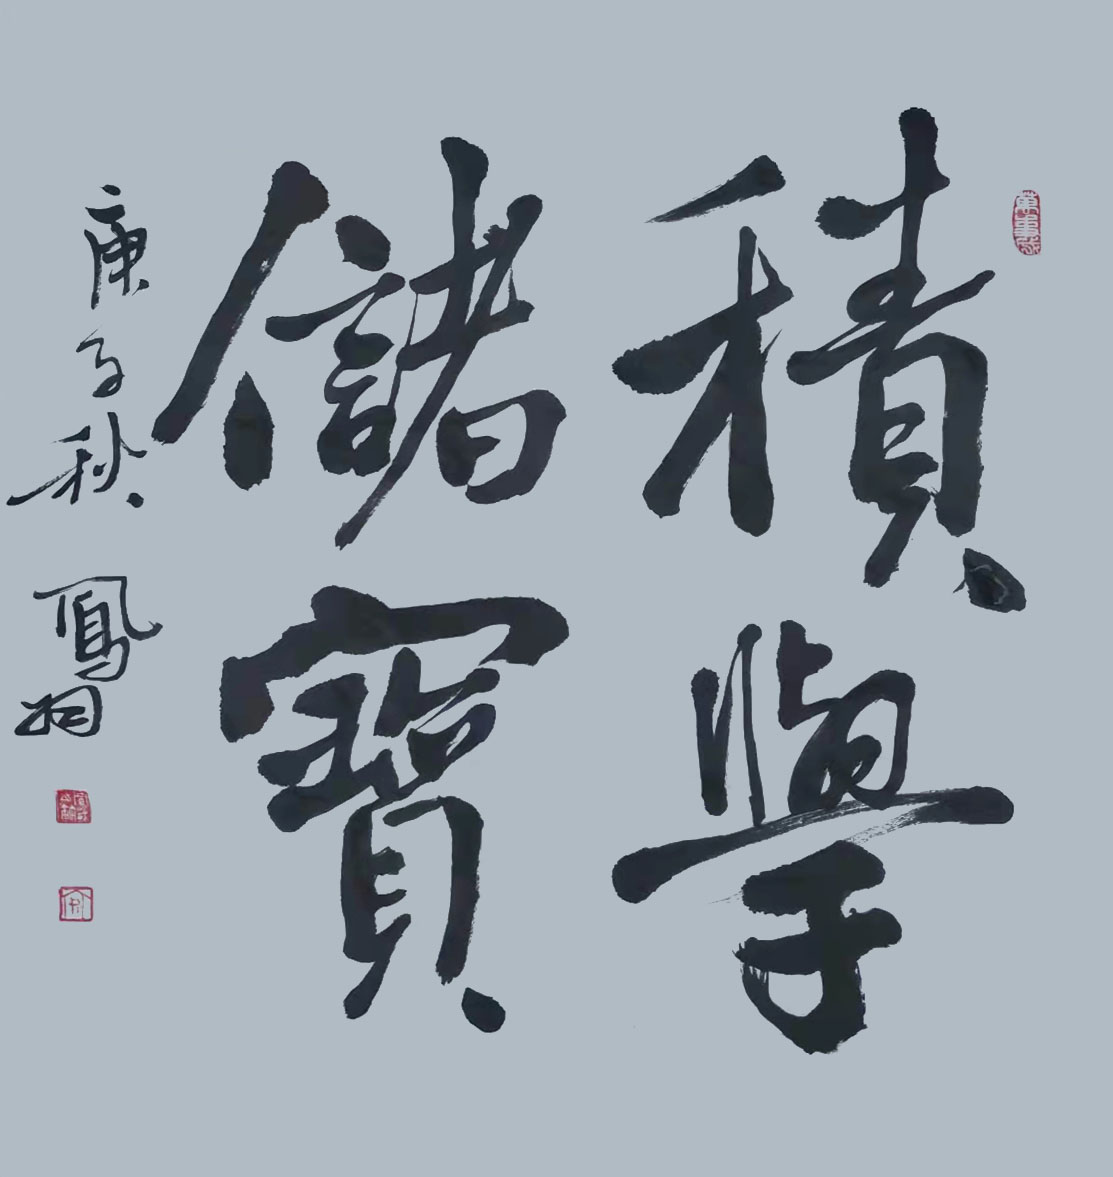 積學
儲寶
庚子秋
鳳翔